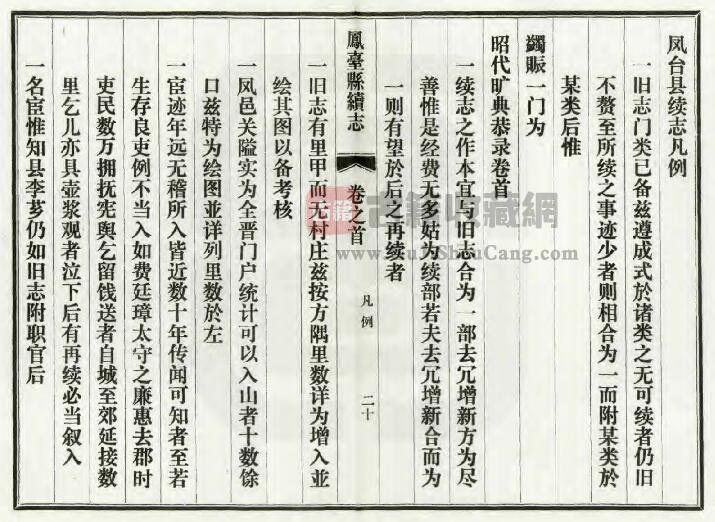 凤台县续志凡例
一旧志门类已备兹遵成式於诸类之无可续者仍旧
不赘至所续之事迹少者则相合为一而附某类於
某类后惟
蠲赈一门为
昭代旷典恭录卷首
一续志之作本宜与旧志合为一部去冗增新方为尽
善惟是经费无多姑为续部若夫去冗增新合而为
一则有望於后之再续者
鳳臺縣續志
卷之首
凡例
二十
一旧志有里甲而无村庄兹按方隅里数详为增入並
绘其图以备考核
一凤邑关隘实为全晋门户统计可以入山者十数馀
口兹特为绘图並详列里数於左
一宦迹年远无稽所入皆近数十年传闻可知者至若
生存良吏例不当入如费廷璋太守之廉惠去郡时
吏民数万拥抚宪舆乞留饯送者自城至郊延接数
里乞儿亦具壶浆观者泣下后有再续必当叙入
一名宦惟知县李芗仍如旧志附职官后
古籍收藏網
www.GuJiShouCang.com
古籍